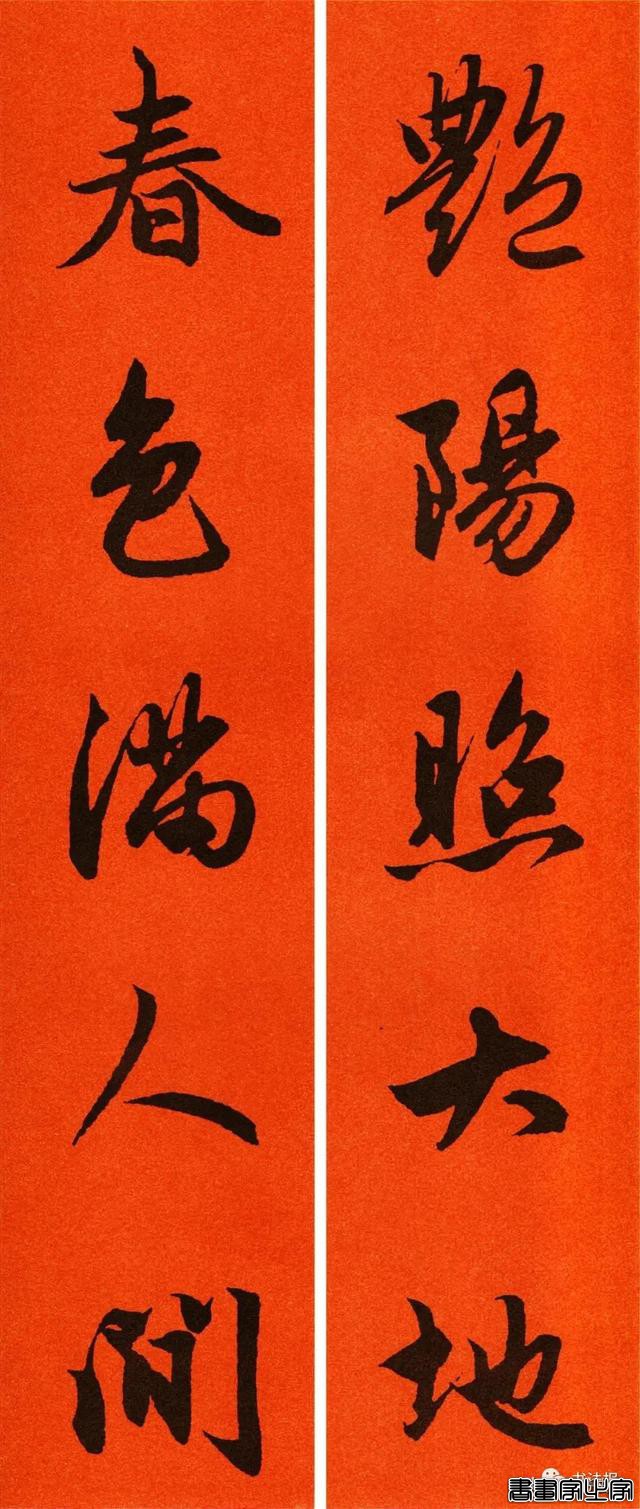 艷陽照大地
春色滿人間
书法报
書畫家之家